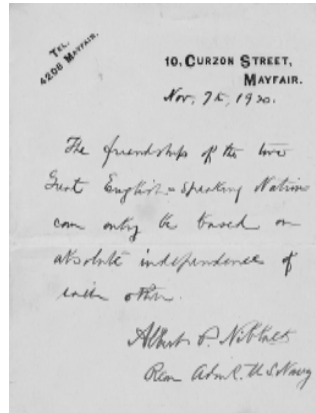 TEL.
4206 MAYFAIR.
10, CURZON STREET,
MAYFAIR.
Nov. 7th, 1920.
The friendship of the two
Great English-Speaking Nations
can only be based on
absolute independence of
each other.
Albert P. Niblack
Rear Adm'l. U.S. Navy